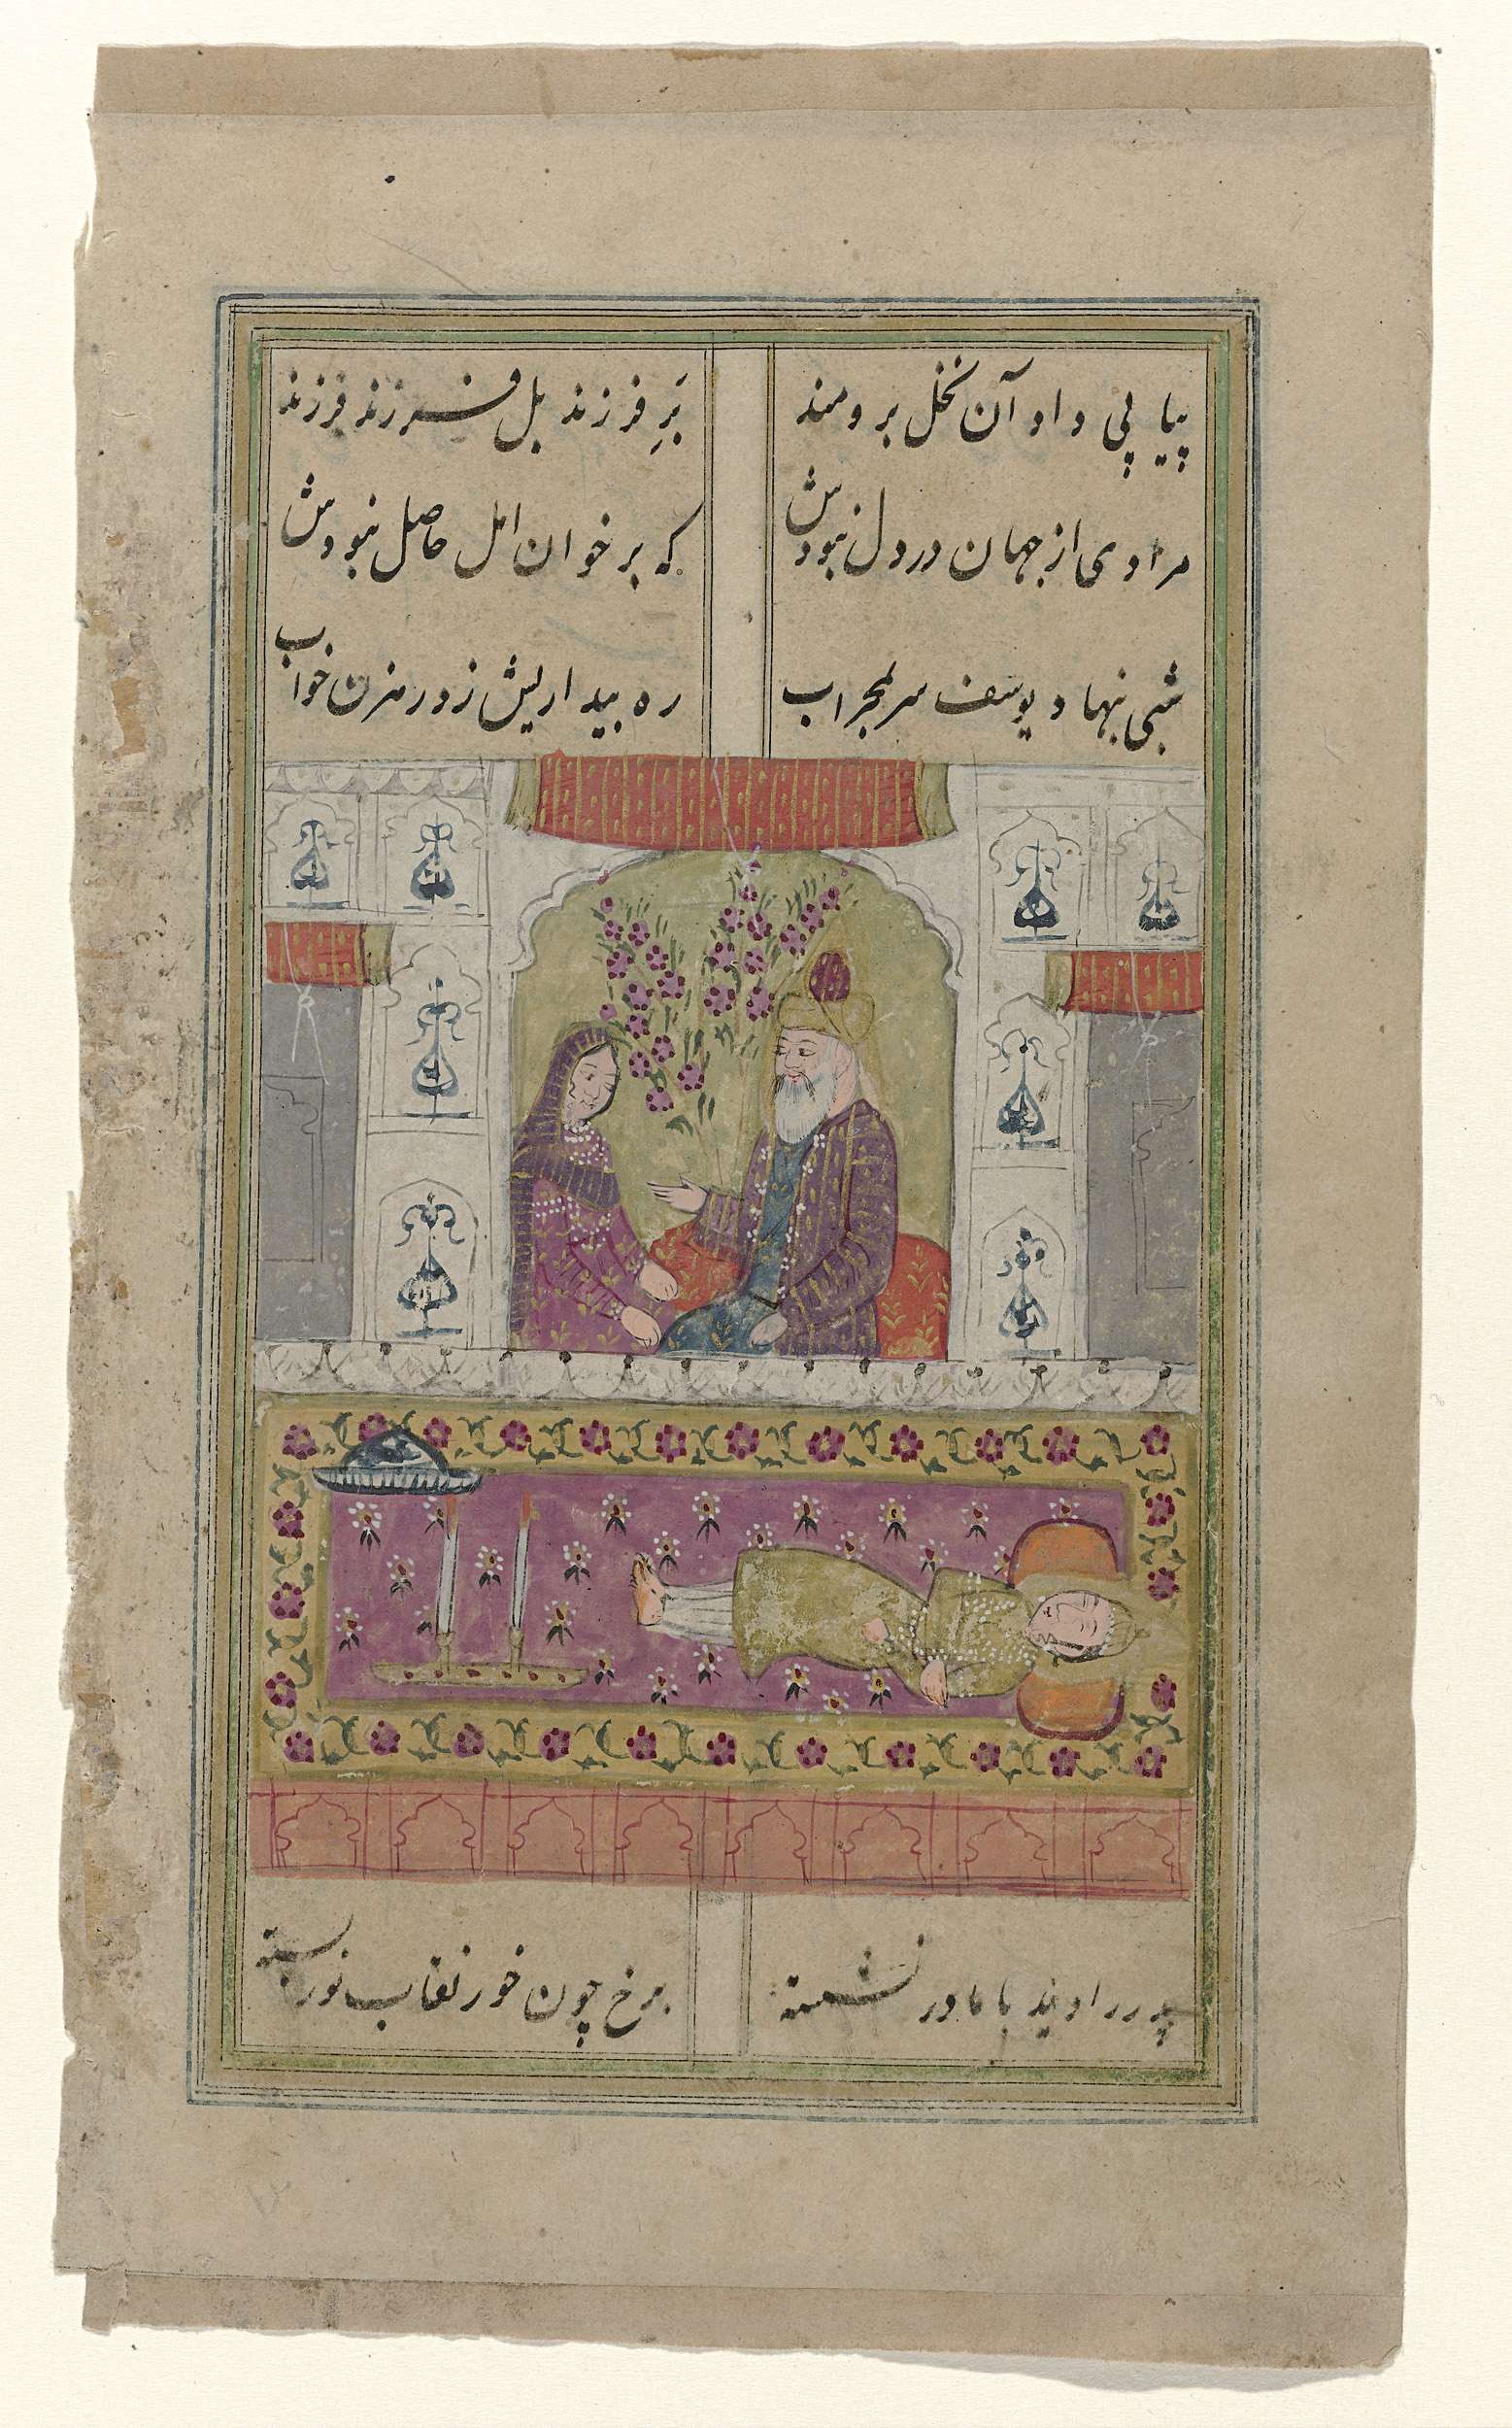 پیاپی داد آن نخل برومند
برِ فرزند بل فرزند فرزند
مرادی از جهان در دل نبودش
که بر خوان امل حاصل نبودش
شبی بنهاد یوسف سر بمحراب
ره بیداریش زد رهزن خواب
پدر را دید با مادر نشسته
برخ چون خور نقاب نور بسته